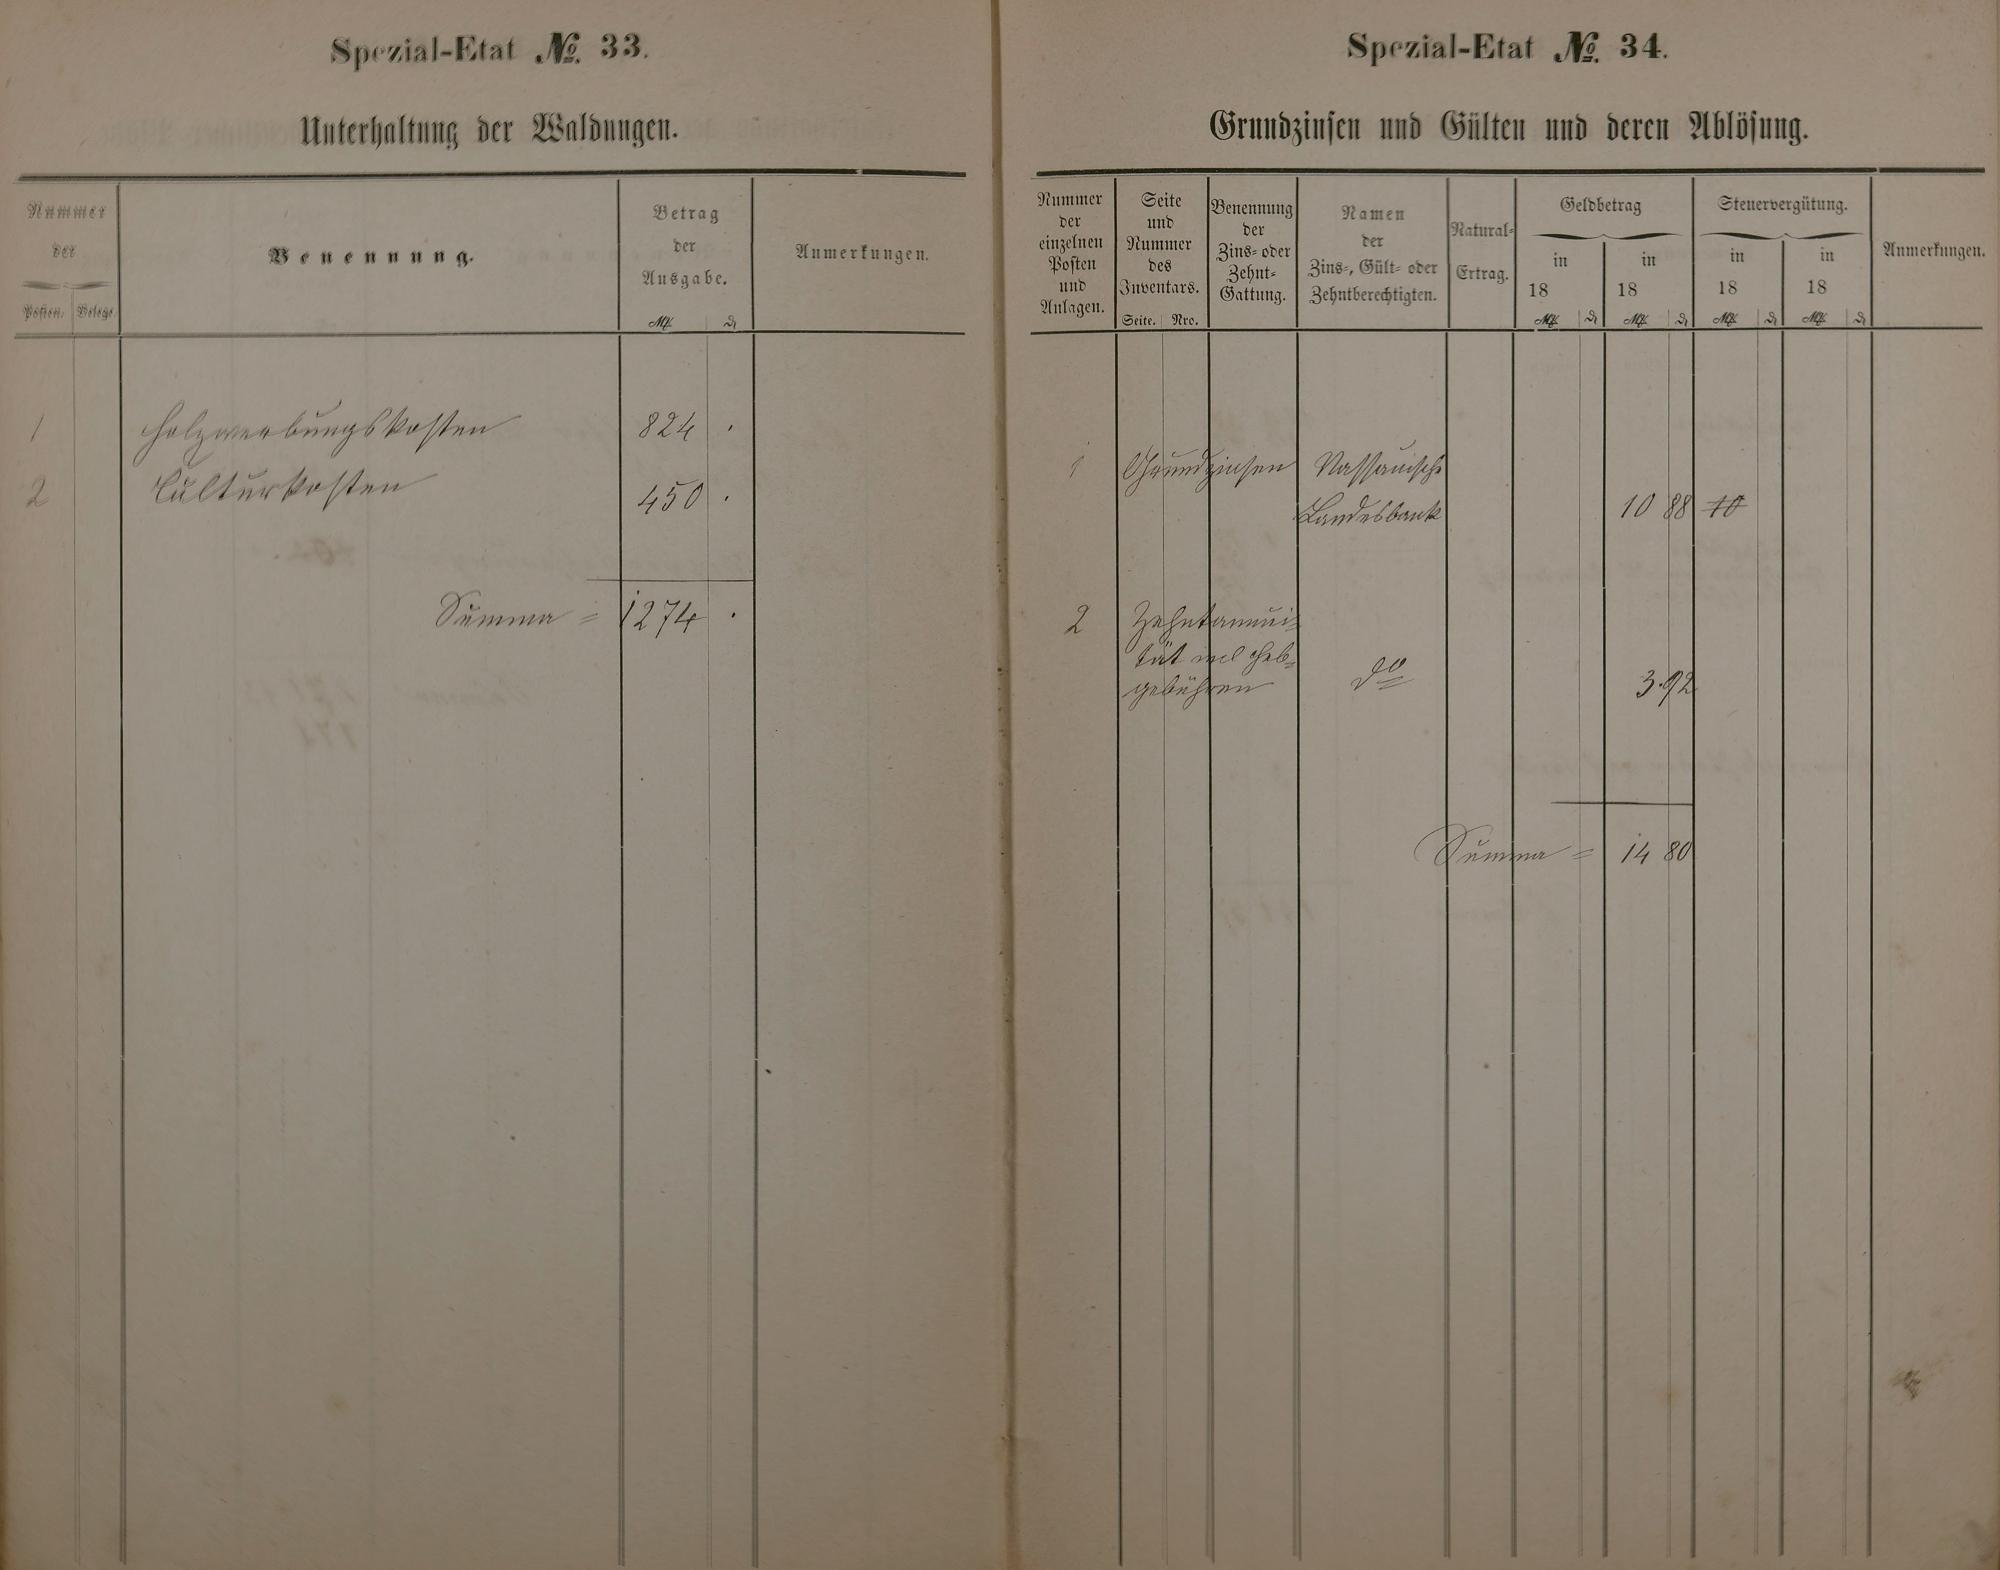 Spezial-Etat №. 33.
Unterhaltung der Waldungen.
Nummer
der
Posten. Belege.
Benennung.
Betrag
der
Ausgabe.
Mk. ₰
Anmerkungen.
1 Holzwerbungskosten 824 .
2 Culturkosten 450 .
Summa = 1274 .
Spezial-Etat №. 34.
Grundzinsen und Gülten und deren Ablösung.
Nummer
der
einzelnen
Posten
und
Anlagen.
Seite
und
Nummer
des
Inventars.
Seite. Nro.
Benennung
der
Zins- oder
Zehnt-
Gattung.
Namen
der
Zins-, Gült- oder
Zehntberechtigten.
Natural-
Ertrag.
Geldbetrag
in in
18 18
Mk. ₰ Mk. ₰
Steuervergütung.
in in
18 18
Mk. ₰ Mk. ₰
Anmerkungen.
1 Grundzinsen Nassauische
Landesbank 10 88 10
2 Zehntannui-
tät incl Heb-
gebühren do 3.92
Summa = 14 80